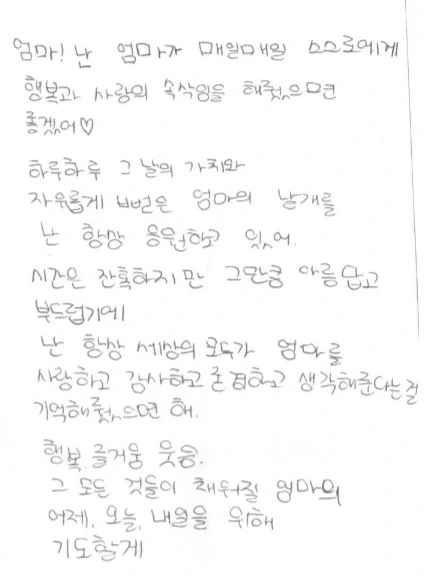 엄마! 난 엄마가 매일매일 스스로에게
행복과 사랑의 속삭임을 해줬으면
좋겠어♡
하루하루 그 날의 가치와
자유롭게 뻗은 엄마의 날개를
난 항상 응원하고 있어.
시간은 잔혹하지만 그만큼 아름답고
부드럽기에
난 항상 세상의 모두가 엄마를
사랑하고 감사하고 존경하고 생각해준다는걸
기억해줬으면 해.
행복, 즐거움, 웃음.
그 모든 것들이 채워질 엄마의
어제, 오늘, 내일을 위해
기도할게